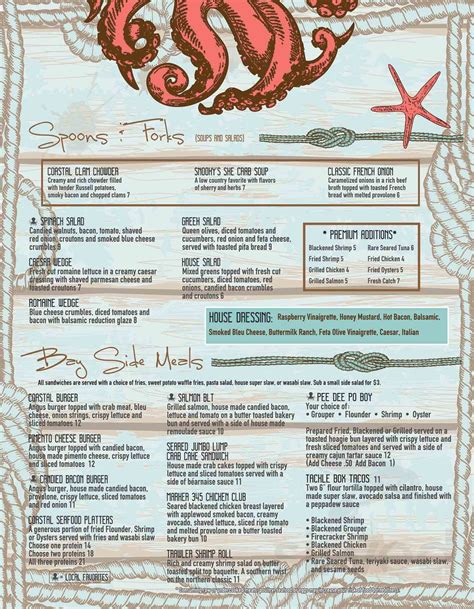 Spoons & Forks (SOUPS AND SALADS)
COASTAL CLAM CHOWDER
Creamy and rich chowder filled
with tender Russell potatoes,
smoky bacon and chopped clams 7
SNOOKY'S SHE CRAB SOUP
A low country favorite with flavors
of sherry and herbs 7
CLASSIC FRENCH ONION
Caramelized onions in a rich beef
broth topped with toasted French
bread with melted provolone 6
SPINACH SALAD
Candied walnuts, bacon, tomato, shaved
red onion, croutons and smoked blue cheese
crumbles 9
CAESAR WEDGE
Fresh cut romaine lettuce in a creamy caesar
dressing with shaved parmesan cheese and
toasted croutons 7
ROMAINE WEDGE
Blue cheese crumbles, diced tomatoes and
bacon with balsamic reduction glaze 8
GREEK SALAD
Queen olives, diced tomatoes and
cucumbers, red onion and feta cheese,
served with toasted pita bread 9
HOUSE SALAD
Mixed greens topped with fresh cut
cucumbers, diced tomatoes, red
onion, bacon and croutons 6
* PREMIUM ADDITIONS*
Blackened Shrimp 5 Rare Seared Tuna 6
Fried Shrimp 5 Fried Chicken 4
Grilled Chicken 4 Fried Oysters 5
Grilled Salmon 5 Fresh Catch 7
HOUSE DRESSING: Raspberry Vinaigrette, Honey Mustard, Hot Bacon, Balsamic,
Smoked Bleu Cheese, Buttermilk Ranch, Feta Olive Vinaigrette, Caesar, Italian
Bay Side Meals
All sandwiches are served with a choice of fries, sweet potato waffle fries, pasta salad, house super slaw, or wasabi slaw. Sub a small side salad for $3.
COASTAL BURGER
Angus burger topped with crab meat, bleu
cheese, onion strings, crispy lettuce
and sliced tomato 12
PIMENTO CHEESE BURGER
Angus burger topped with candied bacon,
house made pimento cheese, crispy lettuce
and sliced tomatoes 12
CANDIED BACON BURGER
Angus burger, house made candied bacon,
provelone, crispy lettuce, sliced tomatoes
and red onion 11
COASTAL SEAFOOD PLATTERS
A generous portion of fried Flounder, Shrimp
or Oysters served with fries and wasabi slaw
Choose one protein 14
Choose two proteins 18
All three proteins 21
= LOCAL FAVORITES
SALMON BLT
Grilled salmon, house made candied bacon,
lettuce and tomato on a butter toasted bun
and served with a side of house made
remoulade sauce 10
SEARED JUMBO LUMP
CRAB CAKE SANDWICH
House made crab cakes topped with crispy
lettuce and sliced tomato served with a side
of béarnaise sauce 11
MARKER 345 CHICKEN CLUB
Seared blackened chicken breast layered
with applewood smoked bacon, creamy
avocado, shaved lettuce, sliced ripe tomato
and melted provolone on a butter toasted
bakery bun 10
TRAWLER SHRIMP ROLL
Rich and creamy shrimp salad on butter
toasted split top baquette. A southern twist
on the northern classic 11
PEE DEE PO BOY
Your choice of:
• Grouper • Flounder • Shrimp • Oyster
Prepared Fried, Blackened or Grilled served on a
toasted hoagie bun layered with crispy lettuce and
fresh sliced tomatoes and served with a side of
creamy cajun tartar sauce 12
(Add Cheese .50 Add Bacon 1)
TACKLE BOX TACOS 11
Two 6" flour tortilla topped with cilantro, house
made super slaw, avocado salsa and finished with
a peppadew sauce
• Blackened Shrimp
• Blackened Grouper
• Firecracker Shrimp
• Blackened Chicken
• Grilled Salmon
• Rare Seared Tuna, teriyaki sauce, wasabi slaw,
and sesame seeds